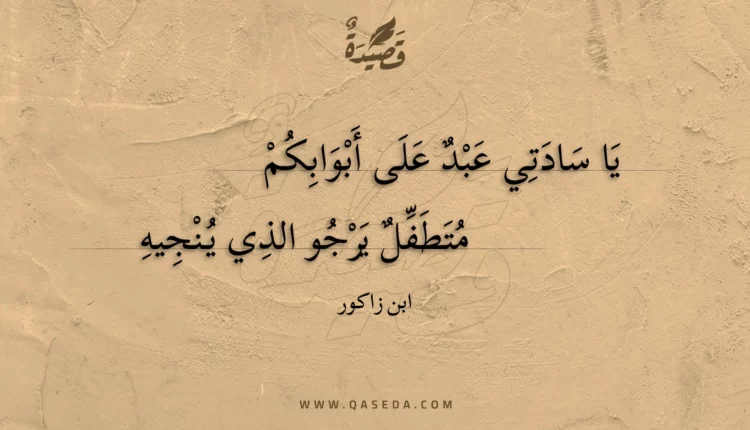 قَصِيدَةٌ
يَا سَادَتِي عَبْدٌ عَلَى أَبْوَابِكُمْ
مُتَطَفِّلٌ يَرْجُو الذِي يُنْجِيهِ
ابن زاكور
WWW.QASEDA.COM